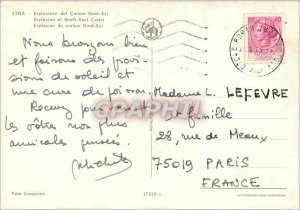 ETNA - Esplosione del Cratere Nord-Est
Explosion of North-East Crater
Explosion du cratère Nord-Est
Nous bronzons bien
et faisons des provi-
sions de soleil et
une cure de poisson.
Recevez
les vôtres nos plus
amicales pensées.
Michèle
Madame L. LEFEVRE
et famille
28, rue de Meaux
75019 PARIS
FRANCE
CPAPHIL
17828-c